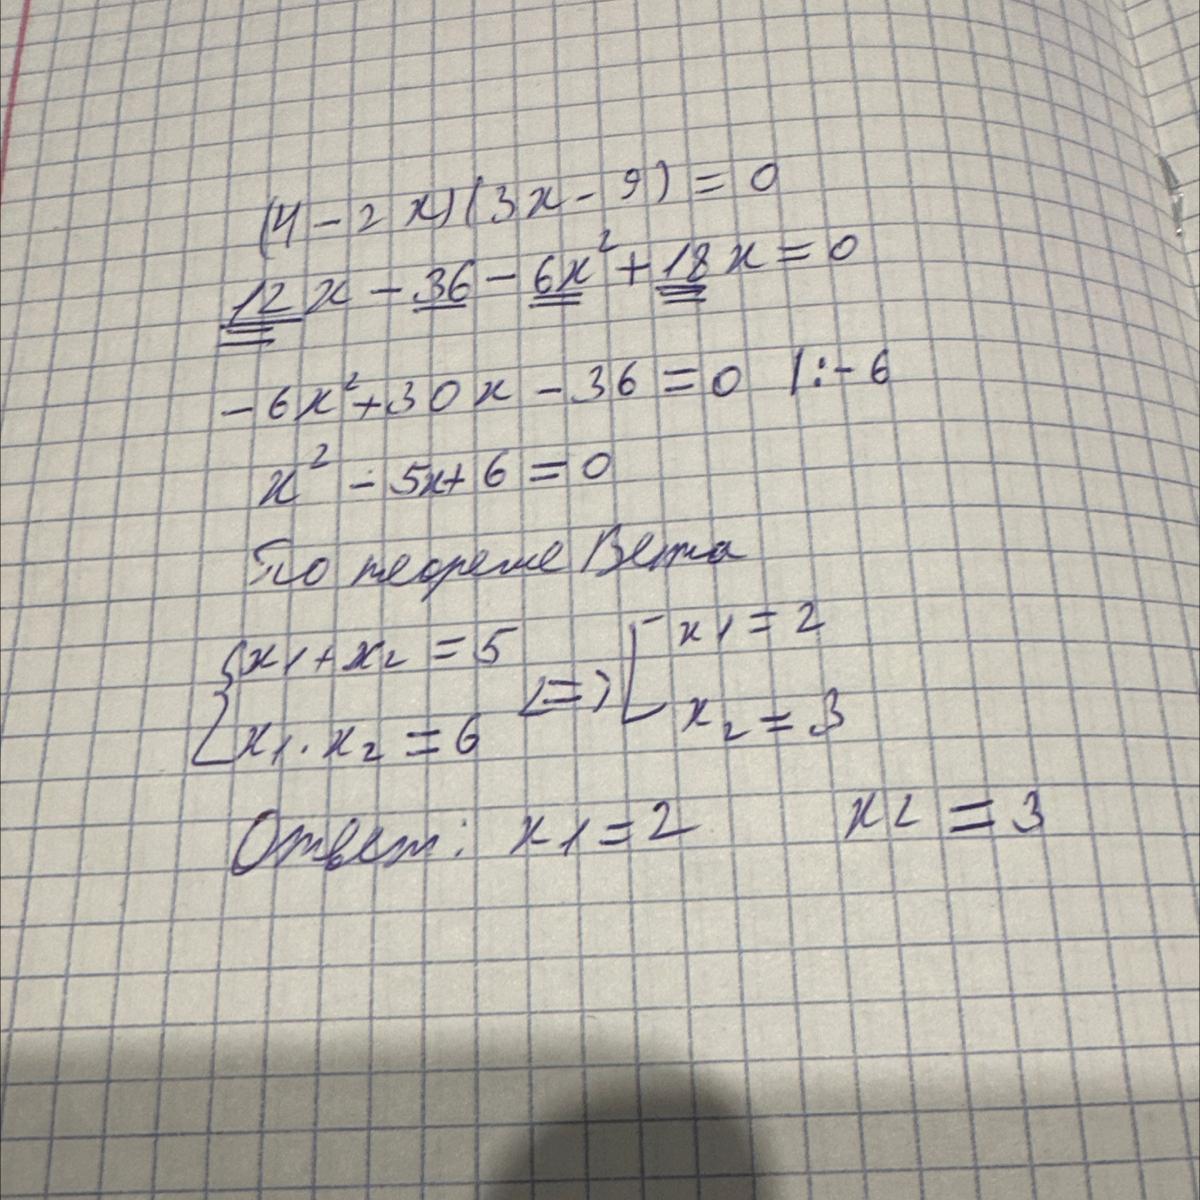 (4 - 2x)(3x - 9) = 0
12x - 36 - 6x² + 18x = 0
-6x² + 30x - 36 = 0 | : - 6
x² - 5x + 6 = 0
По теореме Виета
{ x1 + x2 = 5 <=> [ x1 = 2
x1 · x2 = 6 x2 = 3
Ответ: x1 = 2 x2 = 3